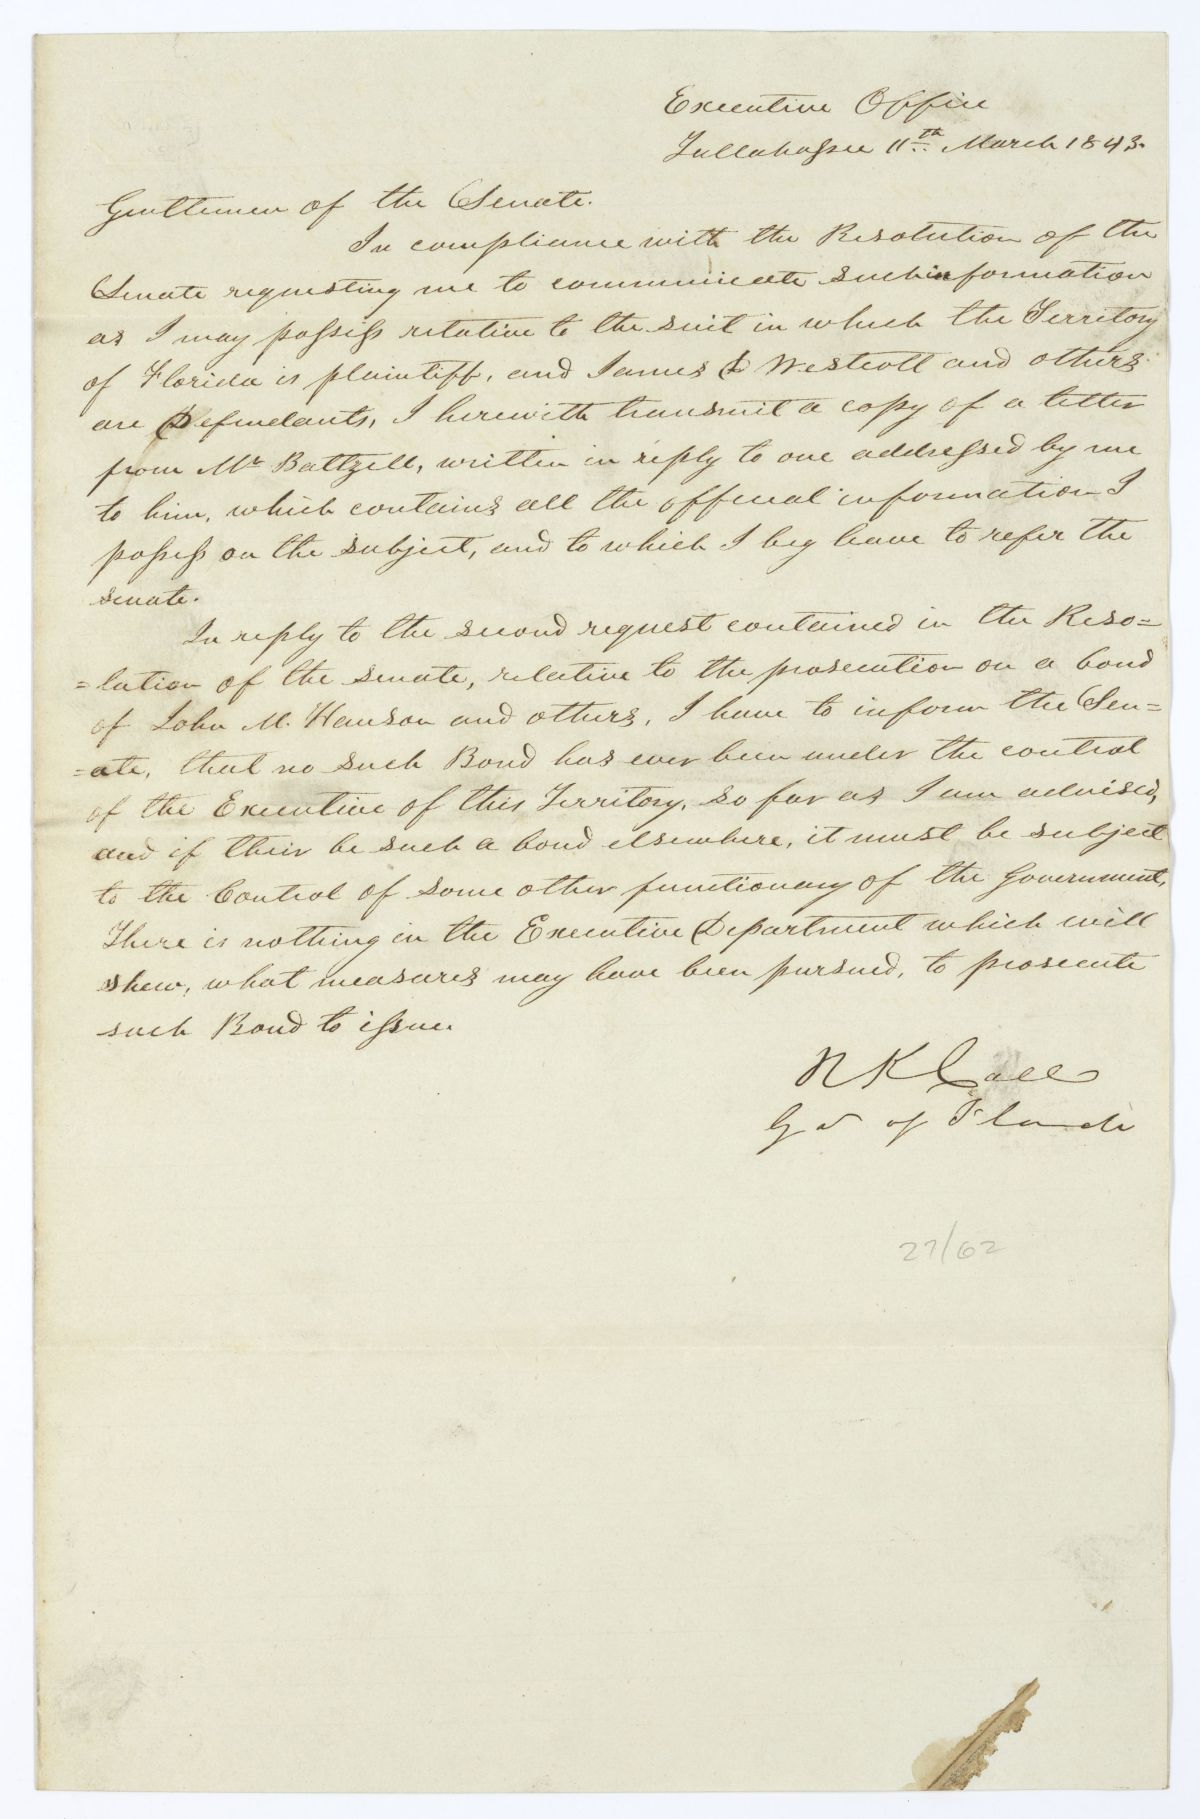 Executive Office
Tallahassee 11th March 1843.
Gentlemen of the Senate.
In compliance with the Resolution of the
Senate requesting me to communicate such information
as I may possess relative to the suit in which the Territory
of Florida is plaintiff, and James D Westcott and others
are Defendants, I herewith transmit a copy of a letter
from Mr Baltzell, written in reply to one addressed by me
to him, which contains all the official information I
possess on the subject, and to which I beg leave to refer the
senate.
In reply to the second request contained in the Reso=
=lution of the senate, relative to the prosecution on a bond
of John M. Hanson and others, I have to inform the Sen=
=ate, that no such Bond has ever been under the control
of the Executive of this Territory, so far as I am advised,
and if their be such a bond elsewhere, it must be subject
to the Control of some other functionary of the Government,
There is nothing in the Executive Department which will
shew, what measures may have been pursued, to prosecute
such Bond to issue.
R K Call
Gov of Florida
27/62